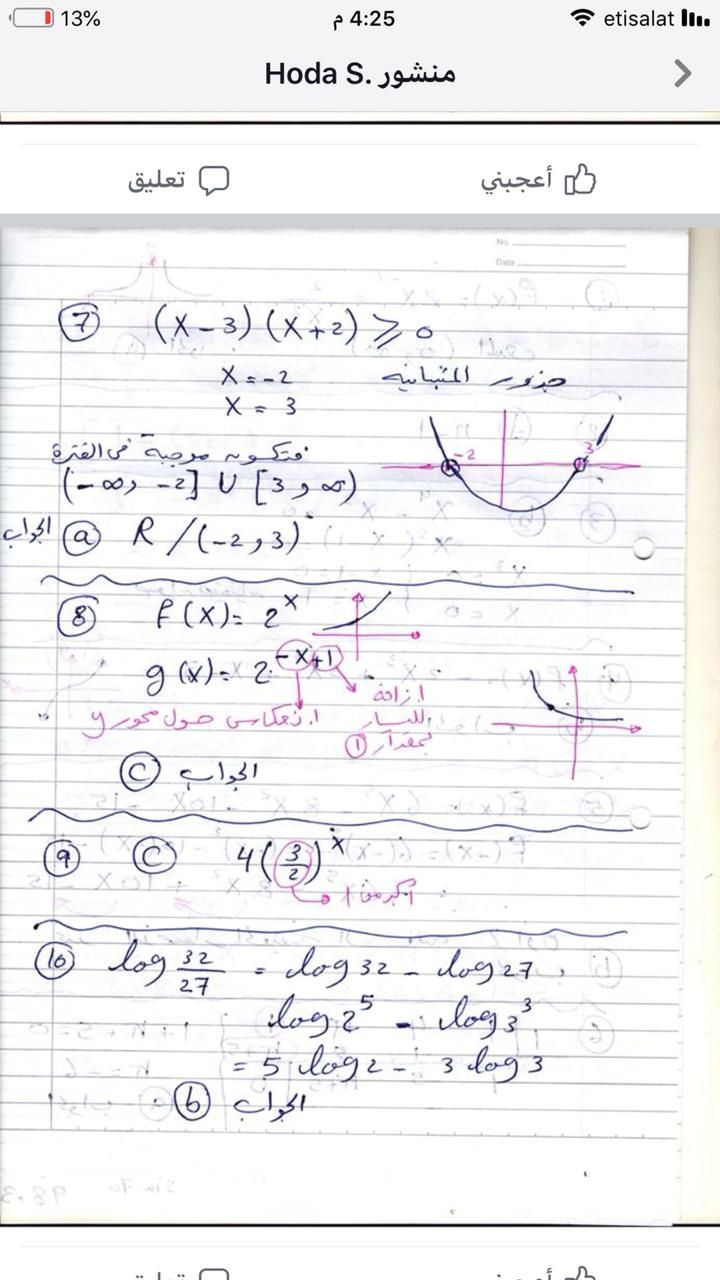 13%
4:25 م
etisalat
منشور .Hoda S
أعجبني
تعليق
No.
Date
7 (x-3)(x+2) ≥ 0
جذور المتباينه
x = -2
x = 3
-2 3
فتكون موجبة في الفترة
(-∞, -2] ∪ [3, ∞)
الجواب a R/(-2,3)
8 f(x) = 2^x
g(x) = 2^{-x+1}
إزاحة
لليسار
بمقدار 1
انعكاس حول محور y
الجواب C
9 C 4(3/2)^x
أكبر من 1
10 log 32/27 = log 32 - log 27
log 2^5 - log 3^3
= 5 log 2 - 3 log 3
الجواب b
أعجبني
تعليق